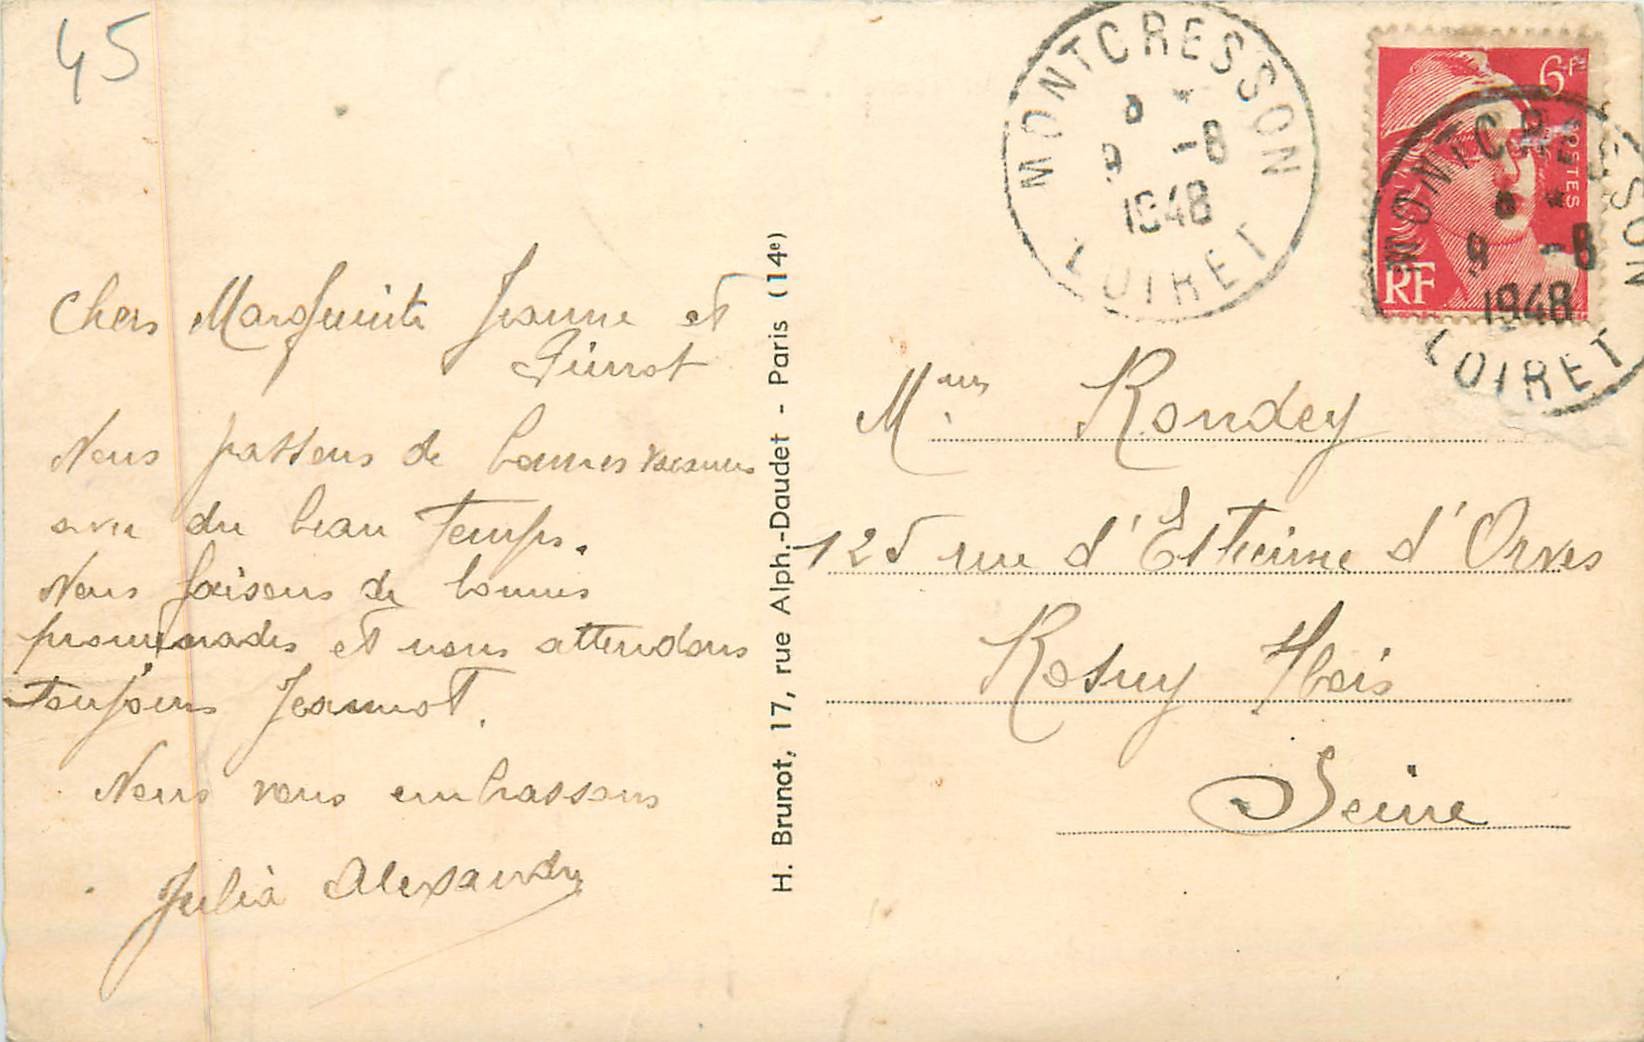 45
Chers Marguerite Jeanne et
Pierrot
Nous passons de bonnes vacances
avec du beau temps.
Nous faisons de bonnes
promenades et nous attendons
toujours Jeannot.
Nous vous embrassons
Julia Alexandre
H. Brunot, 17, rue Alph.-Daudet - Paris (14e)
MONTCRESSON
8 *
9 -8
1948
LOIRET
6F
POSTES
RF
MONTCRESSON
8 *
9 -8
1948
LOIRET
Mme Rondey
125 rue d'Estienne d'Orves
Rosny s/bois
Seine